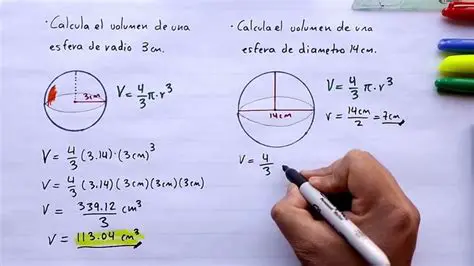 · Calcula el volumen de una
esfera de radio 3cm.
3cm
V = 4/3 π·r³
V = 4/3 (3.14)·(3cm)³
V = 4/3 (3.14)(3cm)(3cm)(3cm)
V = 339.12/3 cm³
V = 113.04 cm³
· Calcula el volumen de una
esfera de diametro 14cm.
14cm
V = 4/3 π·r³
r = 14cm/2 = 7cm
V = 4/3